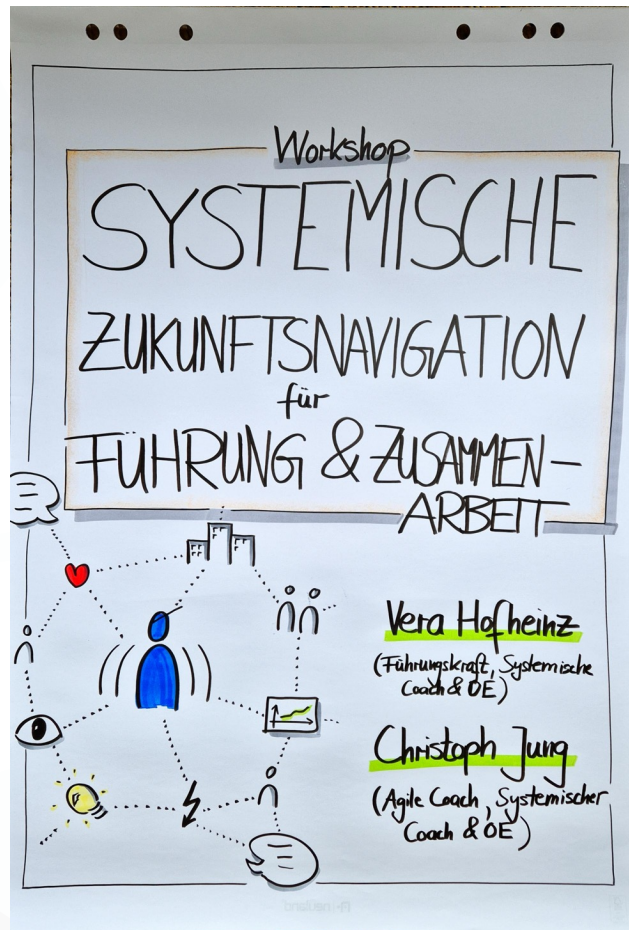 Workshop
SYSTEMISCHE
ZUKUNFTSNAVIGATION
für
FÜHRUNG & ZUSAMMEN-
ARBEIT
Vera Hofheinz
(Führungskraft, Systemische
Coach & OE)
Christoph Jung
(Agile Coach, Systemischer
Coach & OE)